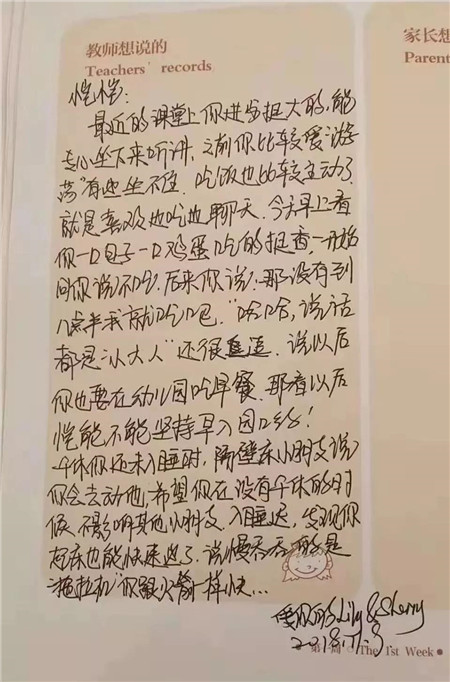 教师想说的
Teachers' records
家长想
Parent
恺恺：
最近的课堂上你进步挺大的，能
专心坐下来听讲，之前你比较爱"游
荡"有些坐不住．吃饭也比较主动了．
就是喜欢边吃边聊天．今天早上看
你一口包子一口鸡蛋吃的挺香，一开始
问你说不吃，后来你说：那没有到
八点半我就吃口包．"哈哈，说话
都是"小大人"还很 说以后
你也要在幼儿园吃早餐．那看以后
恺能不能坚持早入园哈！
午休你还未入睡时，隔壁床小朋友说
你会去动他，希望你在没有午休的时
候，不影响其他小朋友．入睡迟，发现你
起床也能快速起了．说慢吞吞的是
"拖拉机"你跟火箭一样快…
的Lily & Sherry
2018.11.3
第 周 The 1st Week